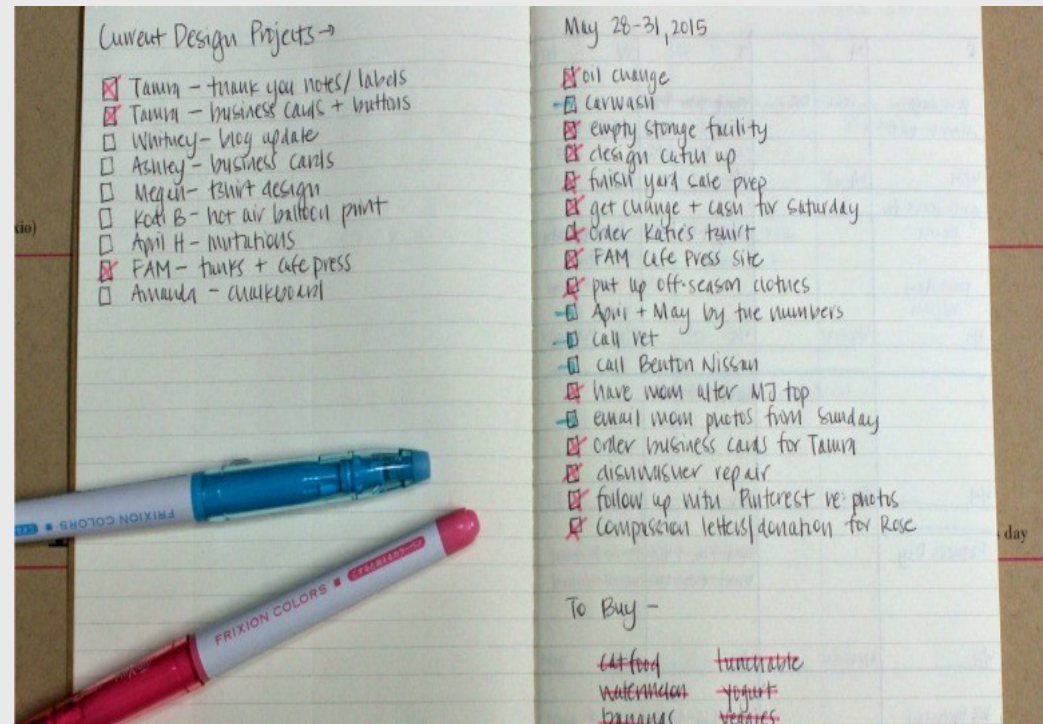 Current Design Projects →
Taura – thank you notes/labels
Taura – business cards + buttons
Whitney – blog update
Ashley – business cards
Megan – tshirt design
Kodi B – hot air balloon print
April H – invitations
FAM – tanks + cafe press
Amanda – chalkboard
May 28-31, 2015
oil change
carwash
empty storage facility
design catch up
finish yard sale prep
get change + cash for Saturday
order Katie's tshirt
FAM Cafe Press site
put up off-season clothes
April + May by the numbers
call vet
call Benton Nissan
have mom alter MJ top
email mom photos from Sunday
order business cards for Taura
dishwasher repair
follow up with Pinterest re: photos
compassion letters/donation for Rose
To Buy –
cat food lunchable
watermelon yogurt
bananas veggies
FRIXION COLORS
FRIXION COLORS
xio)
day